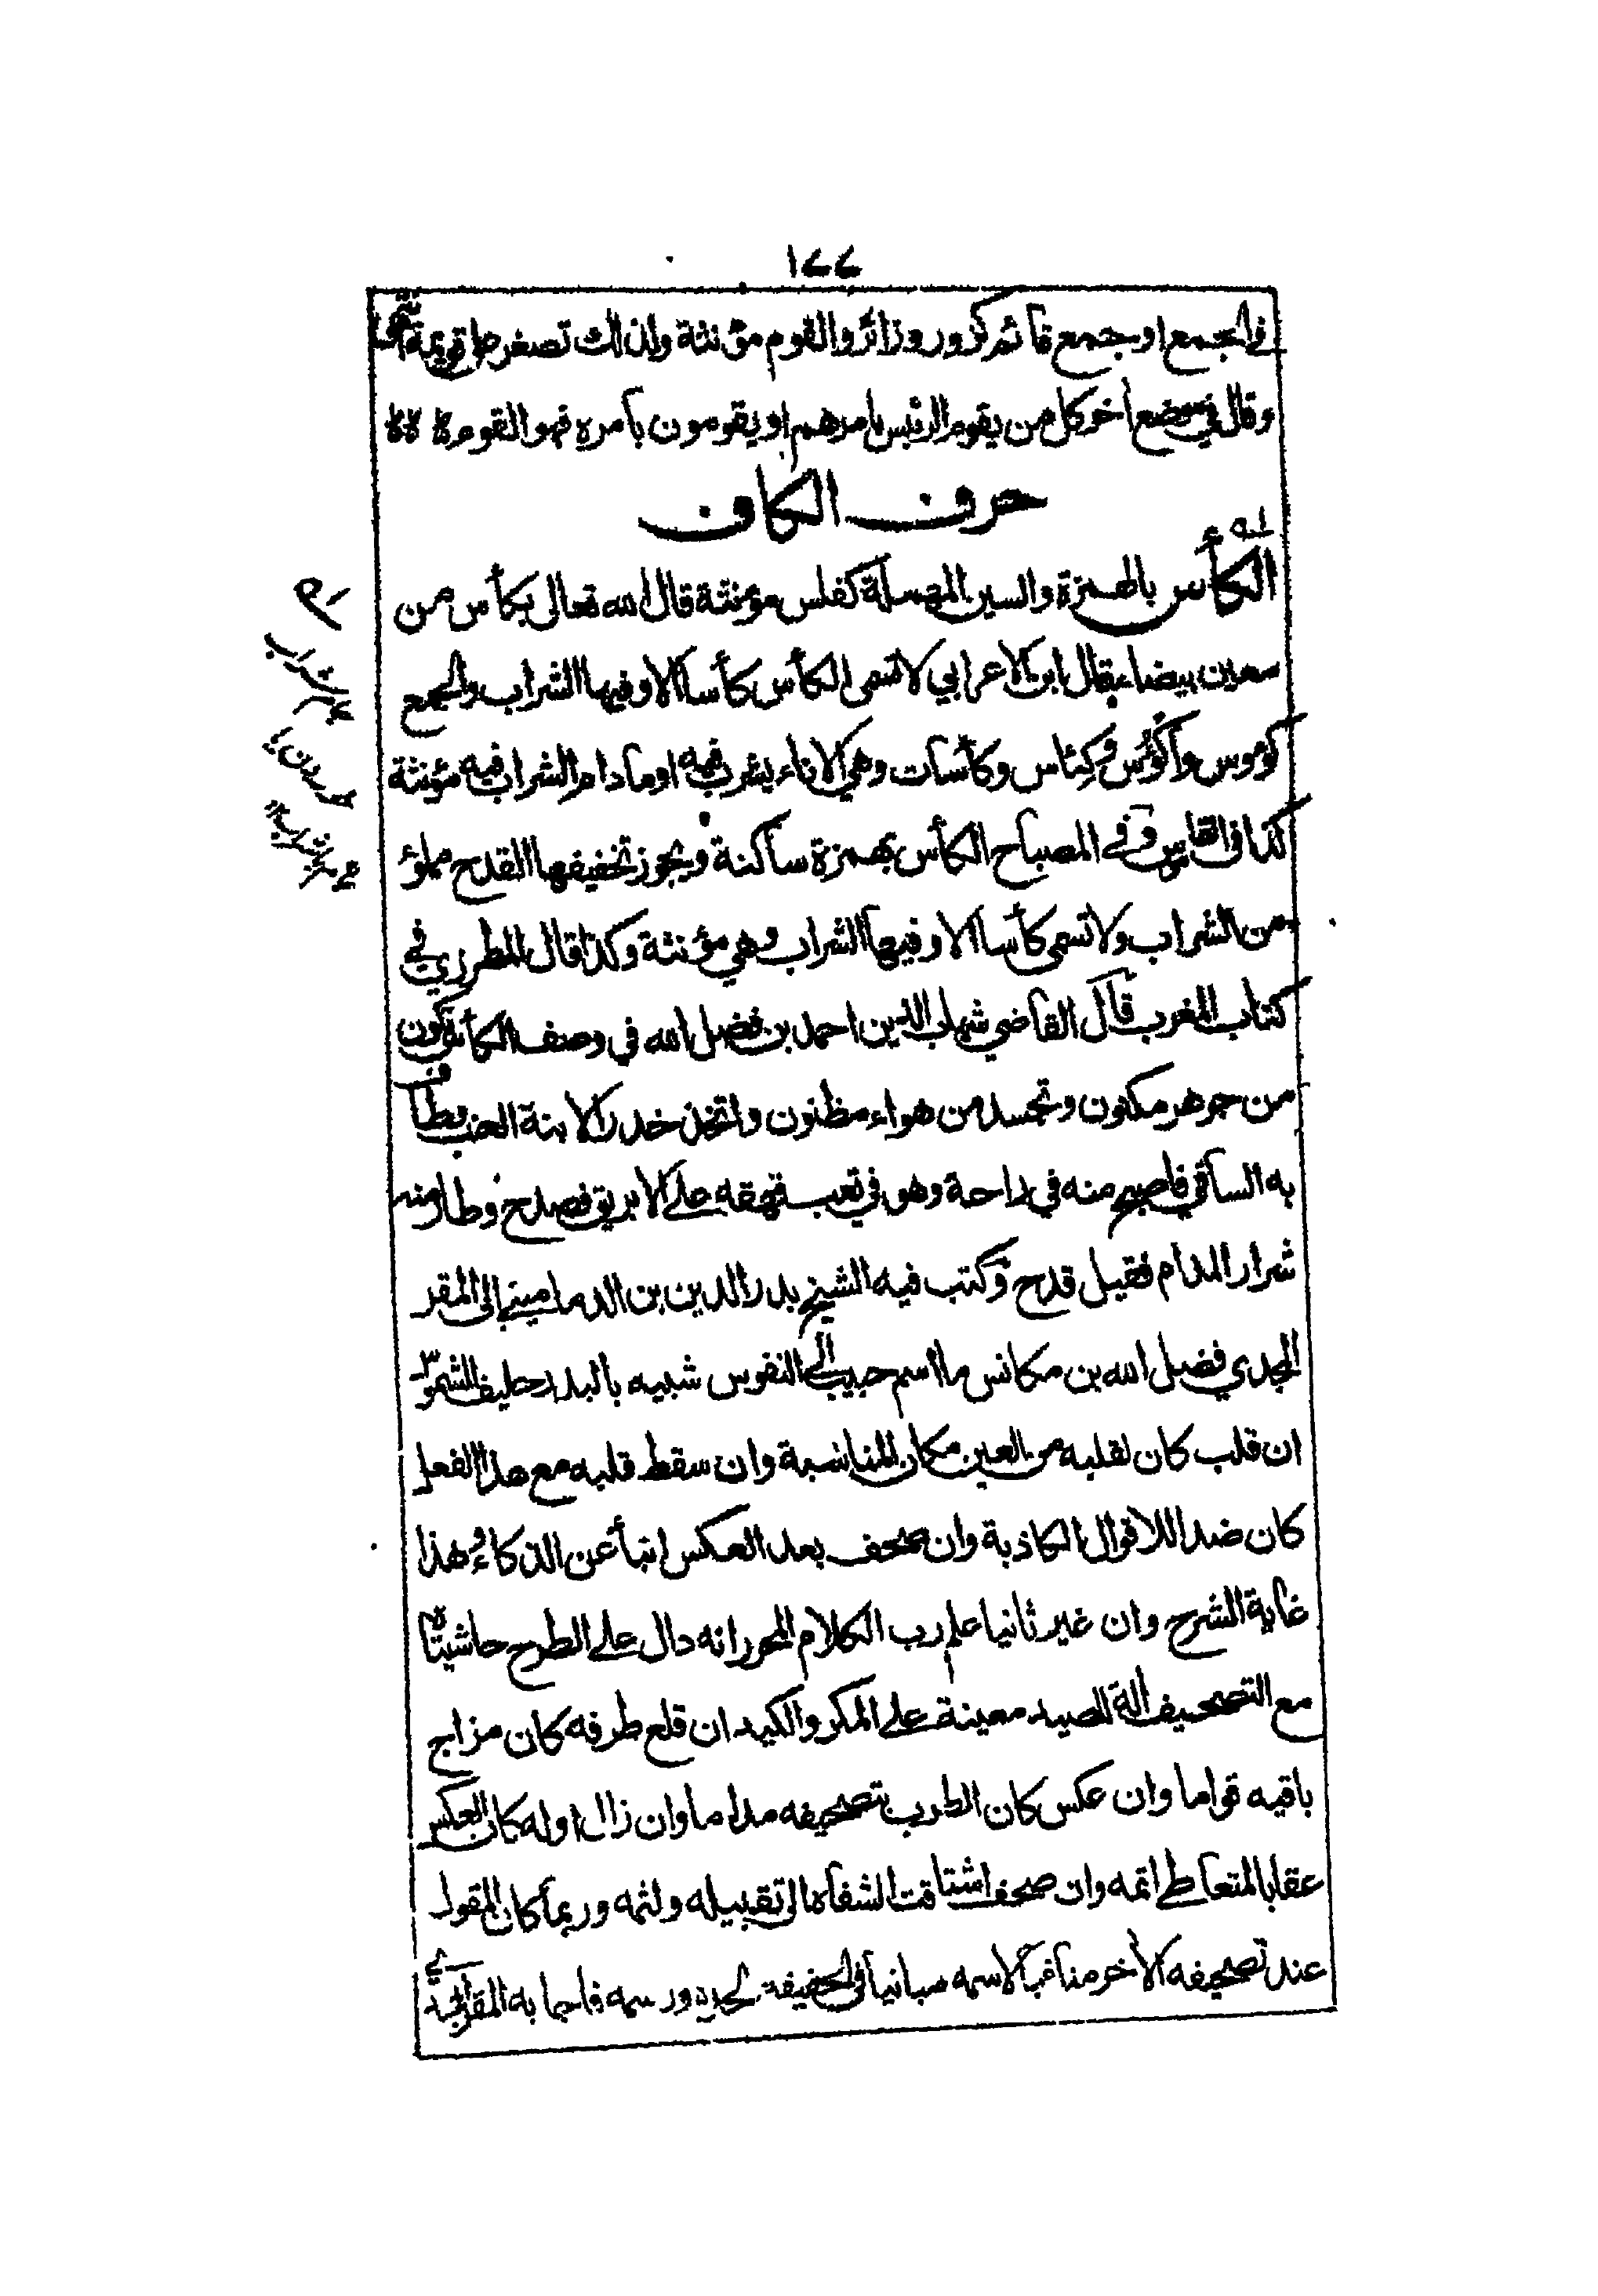 ١٧٧
في الجمع او جمع قائم كزور وزائر والقوم مؤنثة ولذلك تصغرها قويمة
وقال في موضع آخر كل من يقوم الرئيس بامرهم او يقومون بأمره فهو القوم
حرف الكاف
الكأس بالهمزة والسين المهملة كفلس مؤنثة قال الله تعالى بكأس من
معين بيضاء قال ابن الاعرابي لا تسمى الكأس كأسا الا وفيها الشراب والجمع
كؤوس وأكؤس وكئاس وكأسات وهي الاناء يشرب فيه او ما دام الشراب فيه مؤنثة
كذا في القاموس وفي المصباح الكأس بهمزة ساكنة ويجوز تخفيفها القدح مملوء
من الشراب ولا تسمى كأسا الا وفيها الشراب وهي مؤنثة وكذا قال المطرزي في
كتاب المغرب قال القاضي شهاب الدين احمد بن فضل الله في وصف الكأس تكون
من جوهر مكنون وتجسد من هواء مظنون واتخذ خدرا لابنة العنب وطاف
به الساقي فاصبح منه في راحة وهو في تعب قهقه على الابريق فصدح وطار منه
شرار المدام فقيل قدح وكتب فيه الشيخ بدر الدين بن الدماميني الى المقر
المجدي فضل الله بن مكانس ما اسم حبيب الى النفوس شبيه بالبدر حليف الشموس
ان قلب كان لقلبه من العين مكان المناسبة وان سقط قلبه مع هذا الفعل
كان ضدا للاقوال الكاذبة وان صحف بعد العكس انبأ عن الذكاء وهذا
غاية الشرح وان غير ثانيا علم رب الكلام المحرر انه دال على الطرح حاشيتاه
مع التصحيف الة للصيد معينة على المكر والكيد ان قلع طرفه كان مزاج
باقيه قواما وان عكس كان الطرب بتصحيفه مداما وان زال اوله كان العكس
عقابا لمتعاطي اثمه وان صحف اشتاقت الشفاه الى تقبيله ولثمه وربما كان المقول
عند تصحيفه الآخر منافيا لاسمه مبانيا في الحقيقة لحده ورسمه فاجابه المقر المجدي